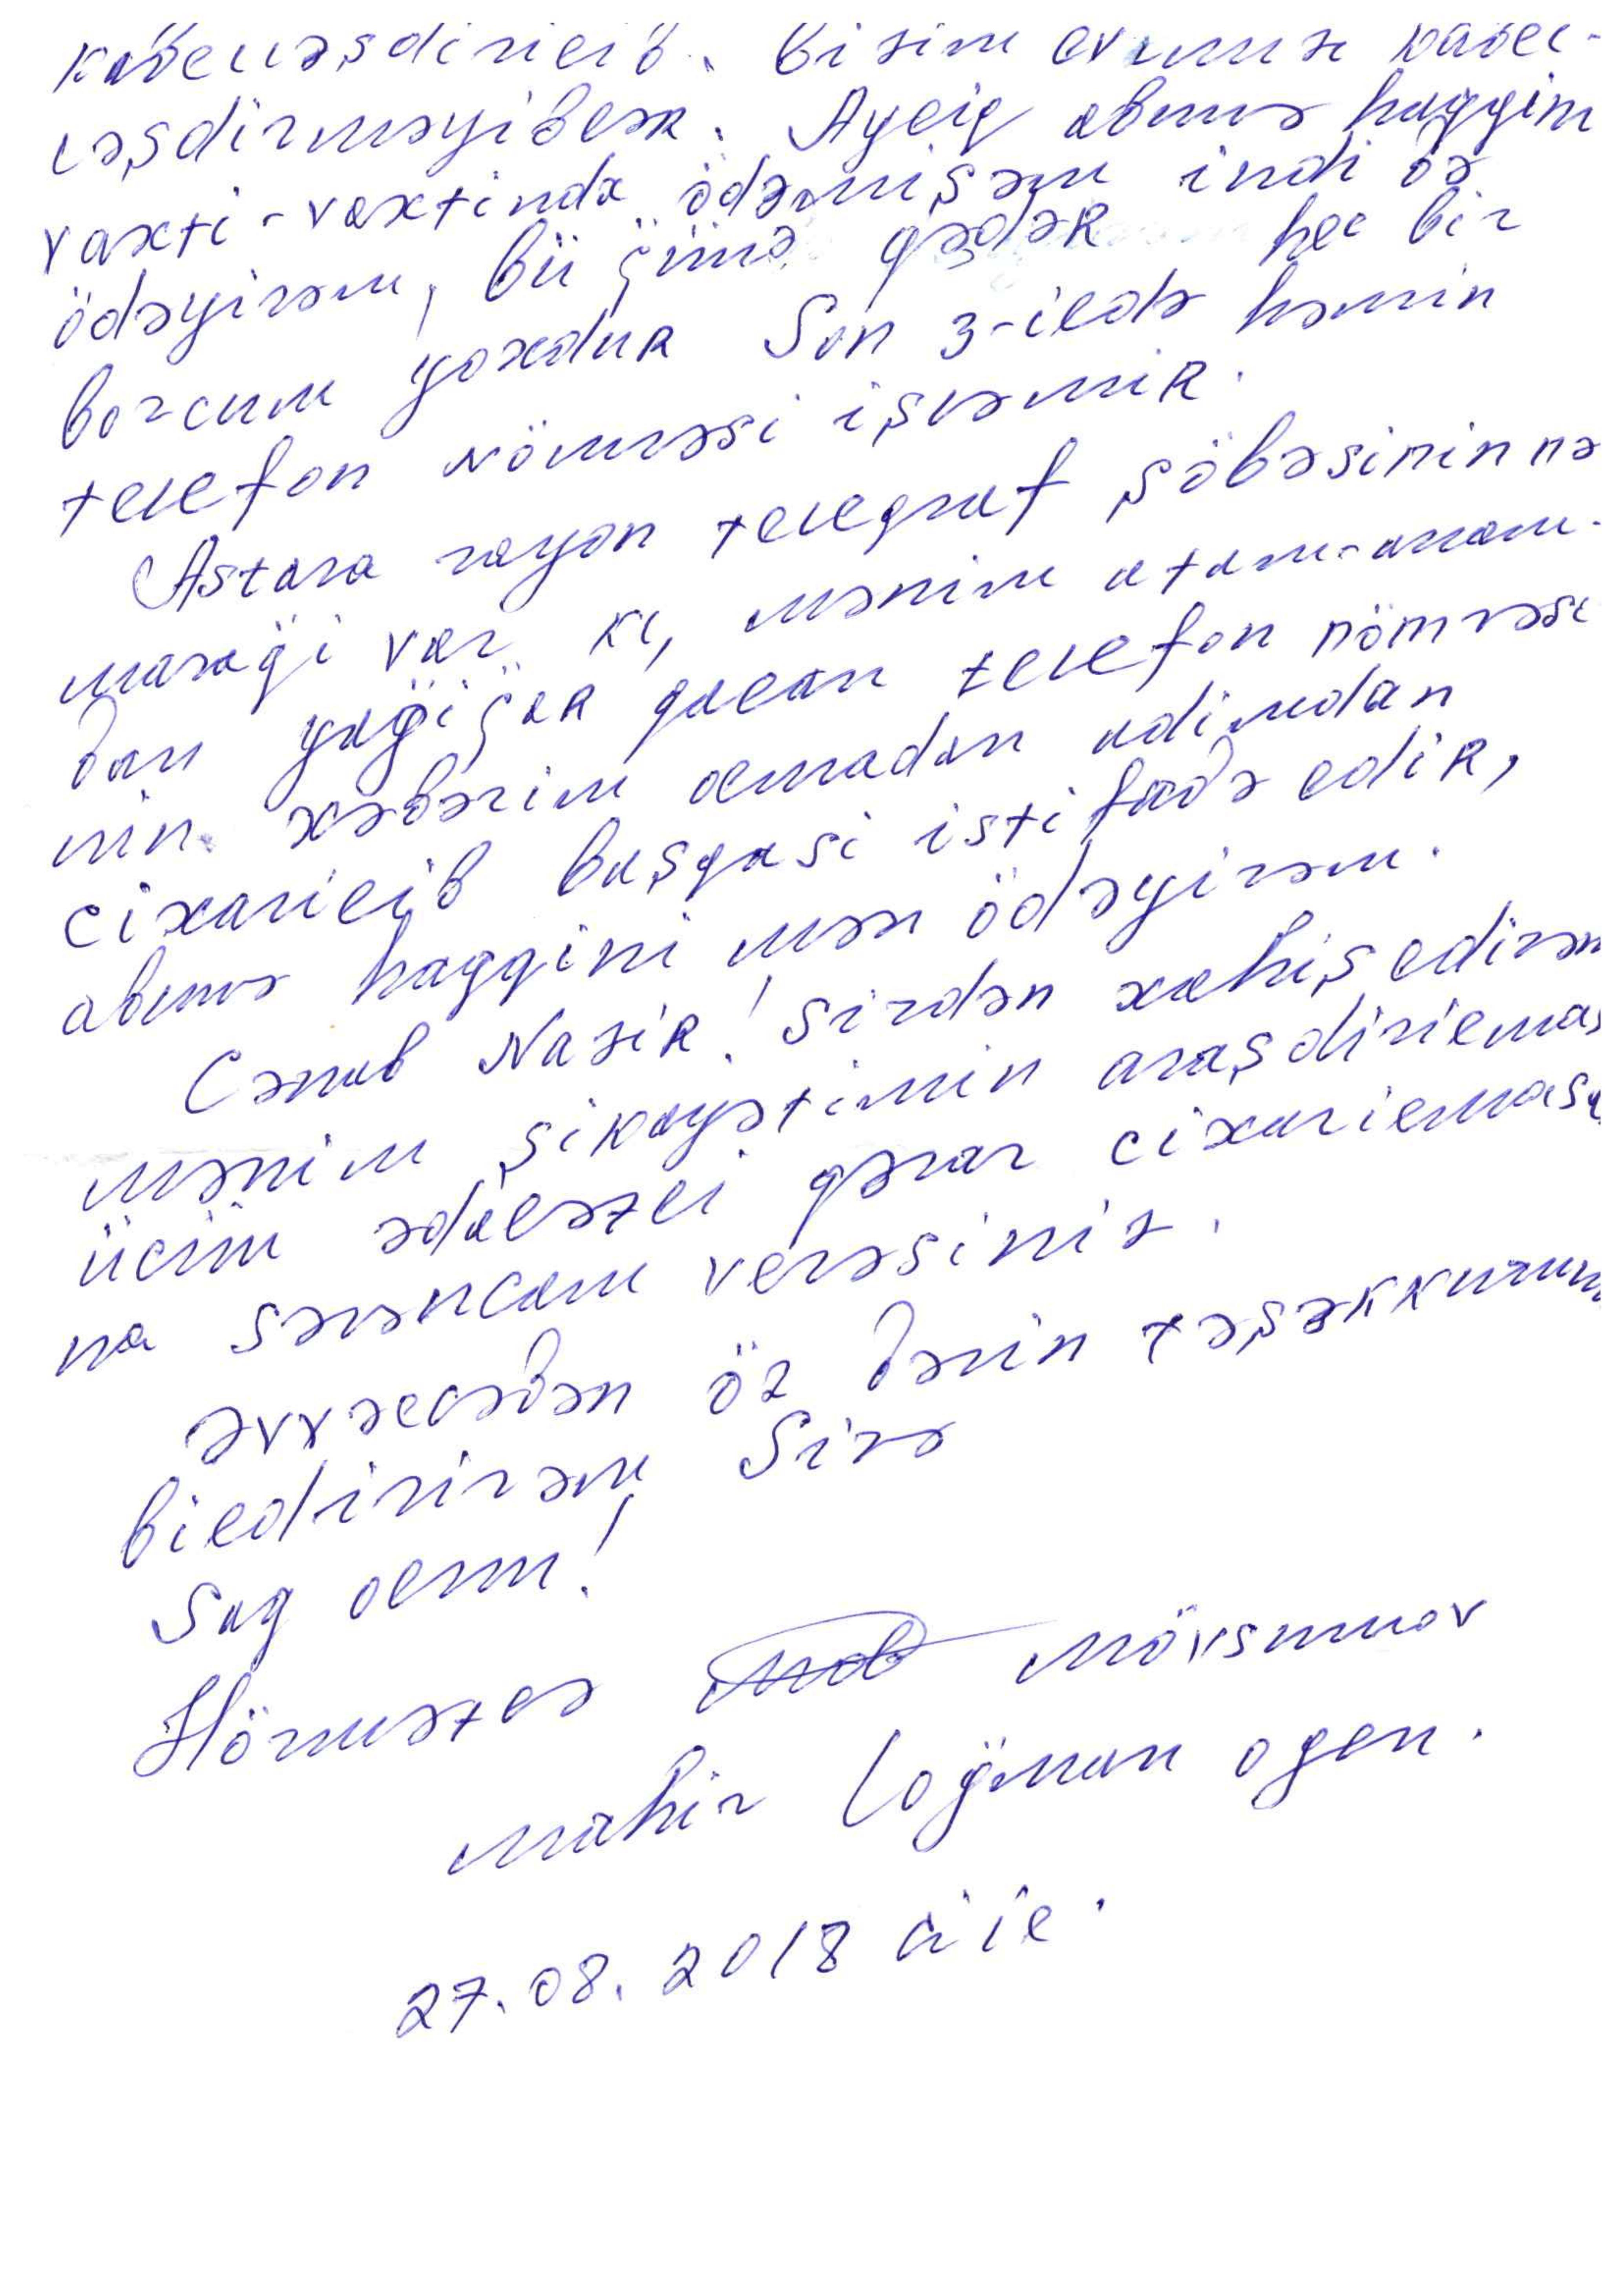 kabelləşdirilib. Bizim evimizi kabel-
ləşdirməyiblər. Aylıq abunə haqqını
vaxtı-vaxtında ödəmişəm indi də
ödəyirəm, bü günə qədər heç bir
borcum yoxdur Son 3-ildə həmin
telefon nömrəsi işləmir.
Astara rayon teleqraf şöbəsinin nə
marağı var ki, mənim atam-anam-
dan yağigar qalan telefon nömrəsi
nin xəbərim olmadan adımdan
çıxarılıb başqası istifadə edir,
abunə haqqını mən ödəyirəm.
Cənab Nazir! Sizdən xahiş edirəm
mənim şikayətimin araşdırılması
üçün ədalətli qərar çıxarılması
na sərəncam verəsiniz.
Əvvəlcədən öz dərin təşəkkürümü
bildirirəm Sizə
Sağ olun!
Hörmətlə Mövsümov
Mahir Loğman oğlu.
27.08.2018 ci il.